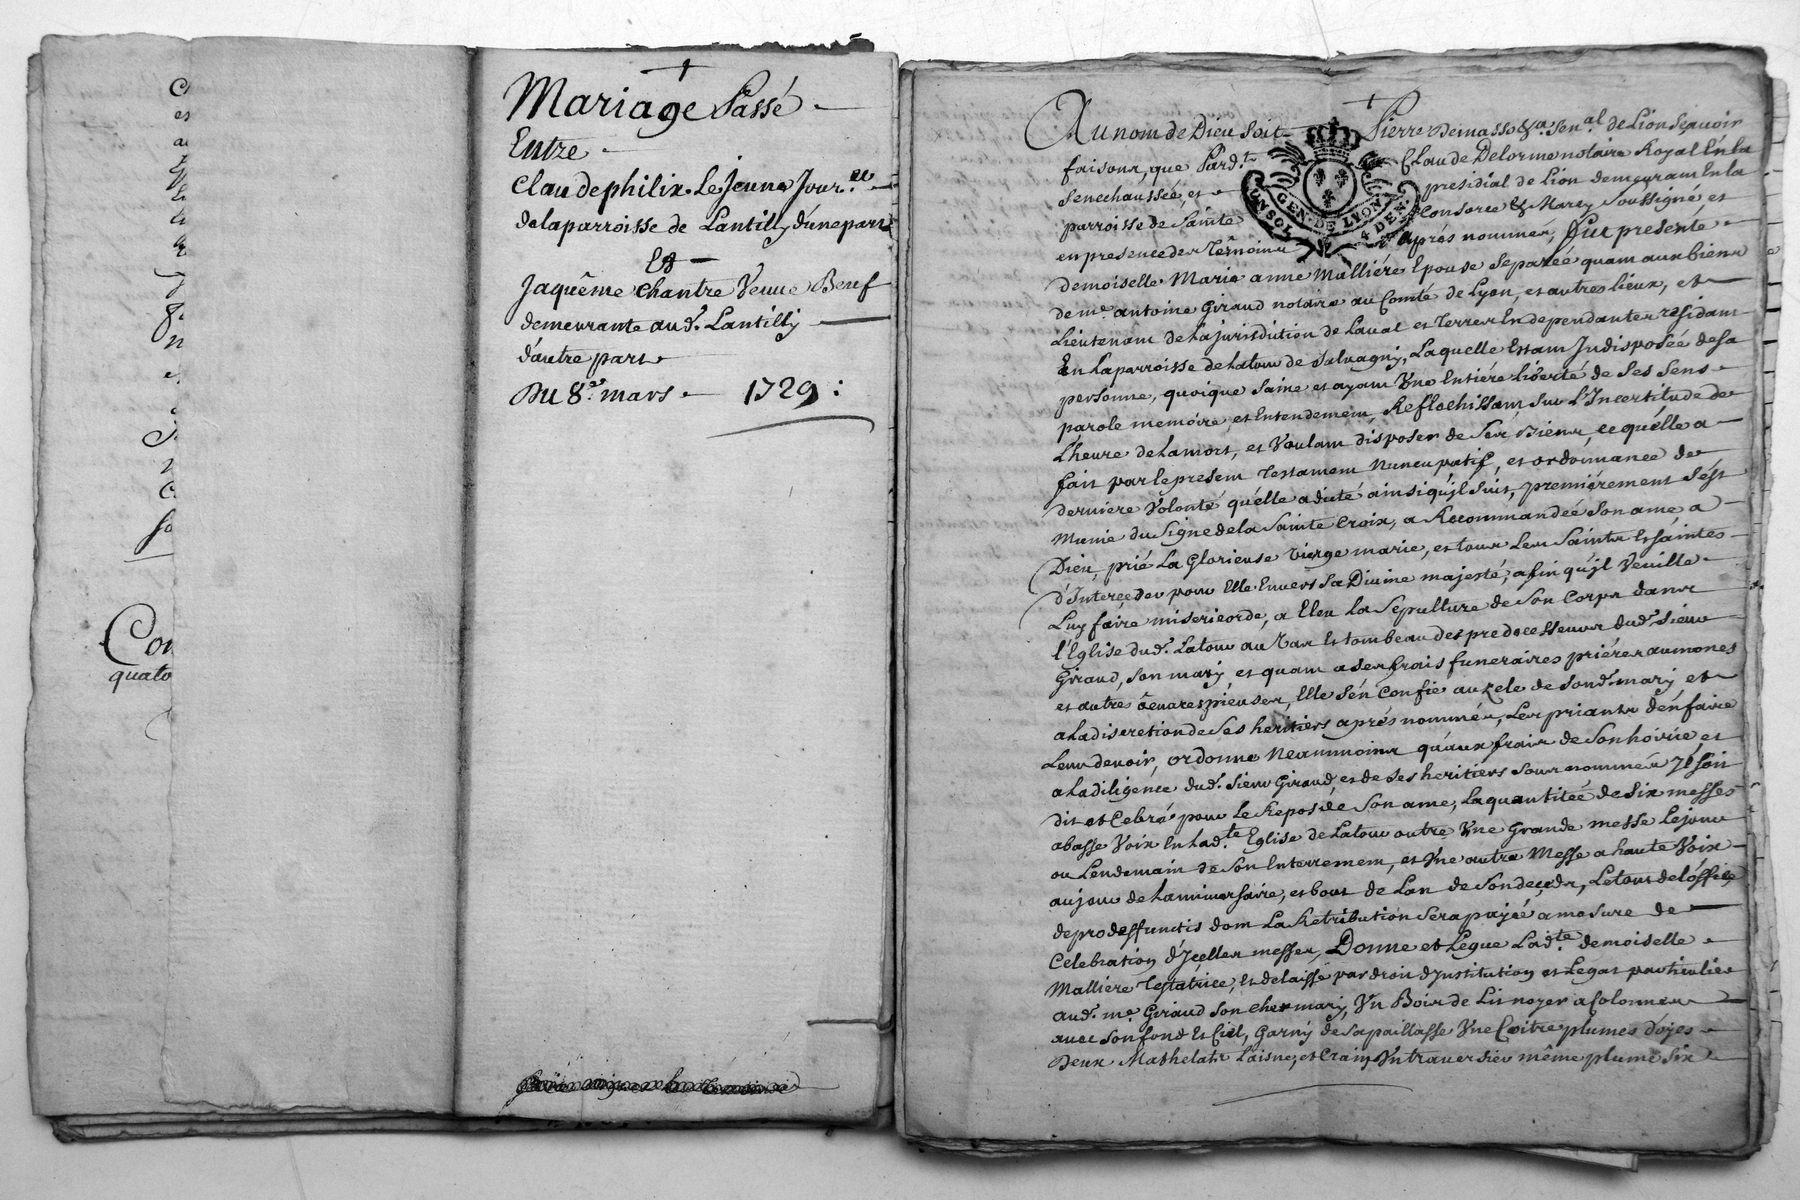 C
es
Con
quato
Mariage Passé
Entre
Claude philix Le Jeune Jour.er
de la parroisse de Lantilly d'une part
Et
Jaquême Chantre Veuue Benf
demeurante aud. Lantilly
d'autre part
Du 8.e mars 1729 :
Au nom de Dieu Soit Pierre Demasso &a. Sen.al de Lion Sçauoir
faisons, que Pard.t Claude Delorme notaire Royal En la
Senechaussée, et presidial de Lion demeurant En la
parroisse de Sainte Consorce & Marcy Soussigné et
en presence des Tesmoins aprés nommés, fut presente
GEN. DE LYON
UN SOL 4 DEN.
demoiselle Marie anne Malliére Epouse Separée quant aux biens
de m.e antoine Giraud notaire au Comté de Lyon, et autres lieux, et
Lieutenant de la jurisdition de Laual et Terres En dependantes residant
En La parroisse de Latour de Salvagny, Laquelle Estant Indisposée de sa
personne, quoique Saine et ayant Vne Entiére liberté de Ses Sens
parole memoire, et Entendement, Reflechissant, Sur L'Incertitude de
L'heure de La mort, et Voulant disposer de Ses Biens, ce qu'elle a
fait par le present Testament Nuncupatif, et ordonnance de
derniere Volonté qu'elle a dicté ainsi qu'jl Suit, premiérement S'est
Munie du Signe de la Sainte Croix, a Recommandée Son ame a
Dieu, prié La Glorieuse Vierge marie, et tous Les Saints Et Saintes
d'Interceder pour Elle Envers Sa Divine majesté, afin qu'jl Veuille
Luy faire misericorde, a Eleu La Sepulture de Son Corps dans
l'Eglise dud. Latour au Vas Et tombeau des predecesseurs dud. Sieur
Giraud, Son mary, et quant a Ses frais funeraires priéres aumones
et autres œuures pieuses, Elle S'en Confie au Zele de Sond. mary et
a La discretion de Ses heritiers aprés nommés, Les priants d'en faire
Leur deuoir, ordonne Neanmoins qu'aux frais de Son hoirie, et
a La diligence dud. Sieur Giraud, et de Ses heritiers Sous nommés Jl Soit
dit et Celebré pour Le Repos de Son ame, La quantitée de Six messes
a basse Voix En Lad.te Eglise de Latour outre Vne Grande messe Le jour
ou Lendemain de Son Enterrement, et Vne autre Messe a haute Voix
au jour de L'anniuersaire, et bout de L'an de Son deceds, Le tout de l'office
de pro deffunctis dont La Retribution Sera payée a mesure de
Celebration d'Jcelles messes, Donne et Legue Lad.te demoiselle
Malliere Testatrice, Et delaisse par droit d'Institution et Legat particulier
aud. m.e Giraud Son cher mary, Vn Bois de Lit noyer a Colonnes
auec Son fond Et Ciel, Garny de Sa paillasse Vne Coitre plumes d'oyes
Deux Mathelats Laisne, et Crain Vn trauersier même plume Six